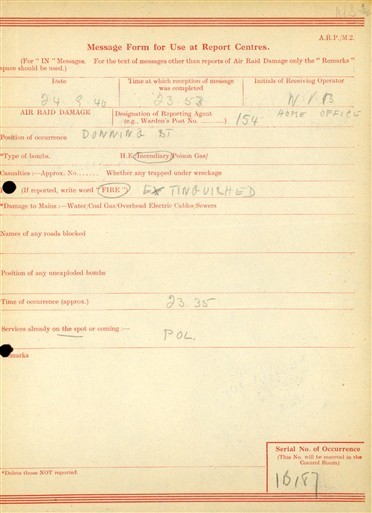 A.R.P./M.2.
Message Form for Use at Report Centres.
(For "IN" Messages. For the text of messages other than reports of Air Raid Damage only the "Remarks"
space should be used.)
Date Time at which reception of message was completed Initials of Receiving Operator
24 9 40 23.58
AIR RAID DAMAGE Designation of Reporting Agent (e.g., Warden's Post No. ) 154 HOME OFFICE
Position of occurrence DONNING ST
*Type of bombs. H.E./Incendiary/Poison Gas/
Casualties:—Approx. No....... Whether any trapped under wreckage
(If reported, write word "FIRE") EXTINGUISHED
*Damage to Mains:—Water/Coal Gas/Overhead Electric Cables/Sewers
Names of any roads blocked
Position of any unexploded bombs
Time of occurrence (approx.) 23.35
Services already on the spot or coming:— POL.
Remarks
Serial No. of Occurrence
(This No. will be inserted in the
Control Room)
*Delete those NOT reported.
16187